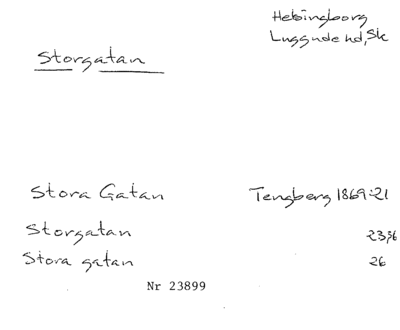 Helsingborg
Luggude hd, Sk
Storgatan
Stora Gatan Tengberg 1869:21
Storgatan 23,26
Stora gatan 26
Nr 23899